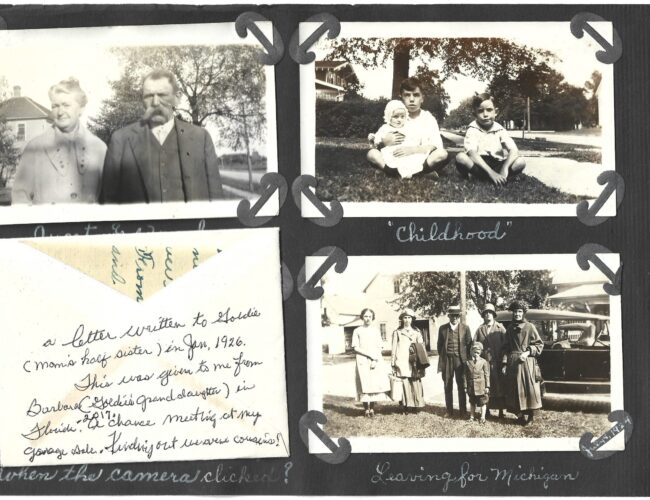 "Childhood"
From
and.
a letter written to Goldie
(mom's half sister) in Jan, 1926.
This was given to me from
Barbara (Goldie's Granddaughter) in
Florida. 2017. A chance meeting at my
garage sale. Finding out we were cousins!
when the camera clicked?
Leaving for Michigan